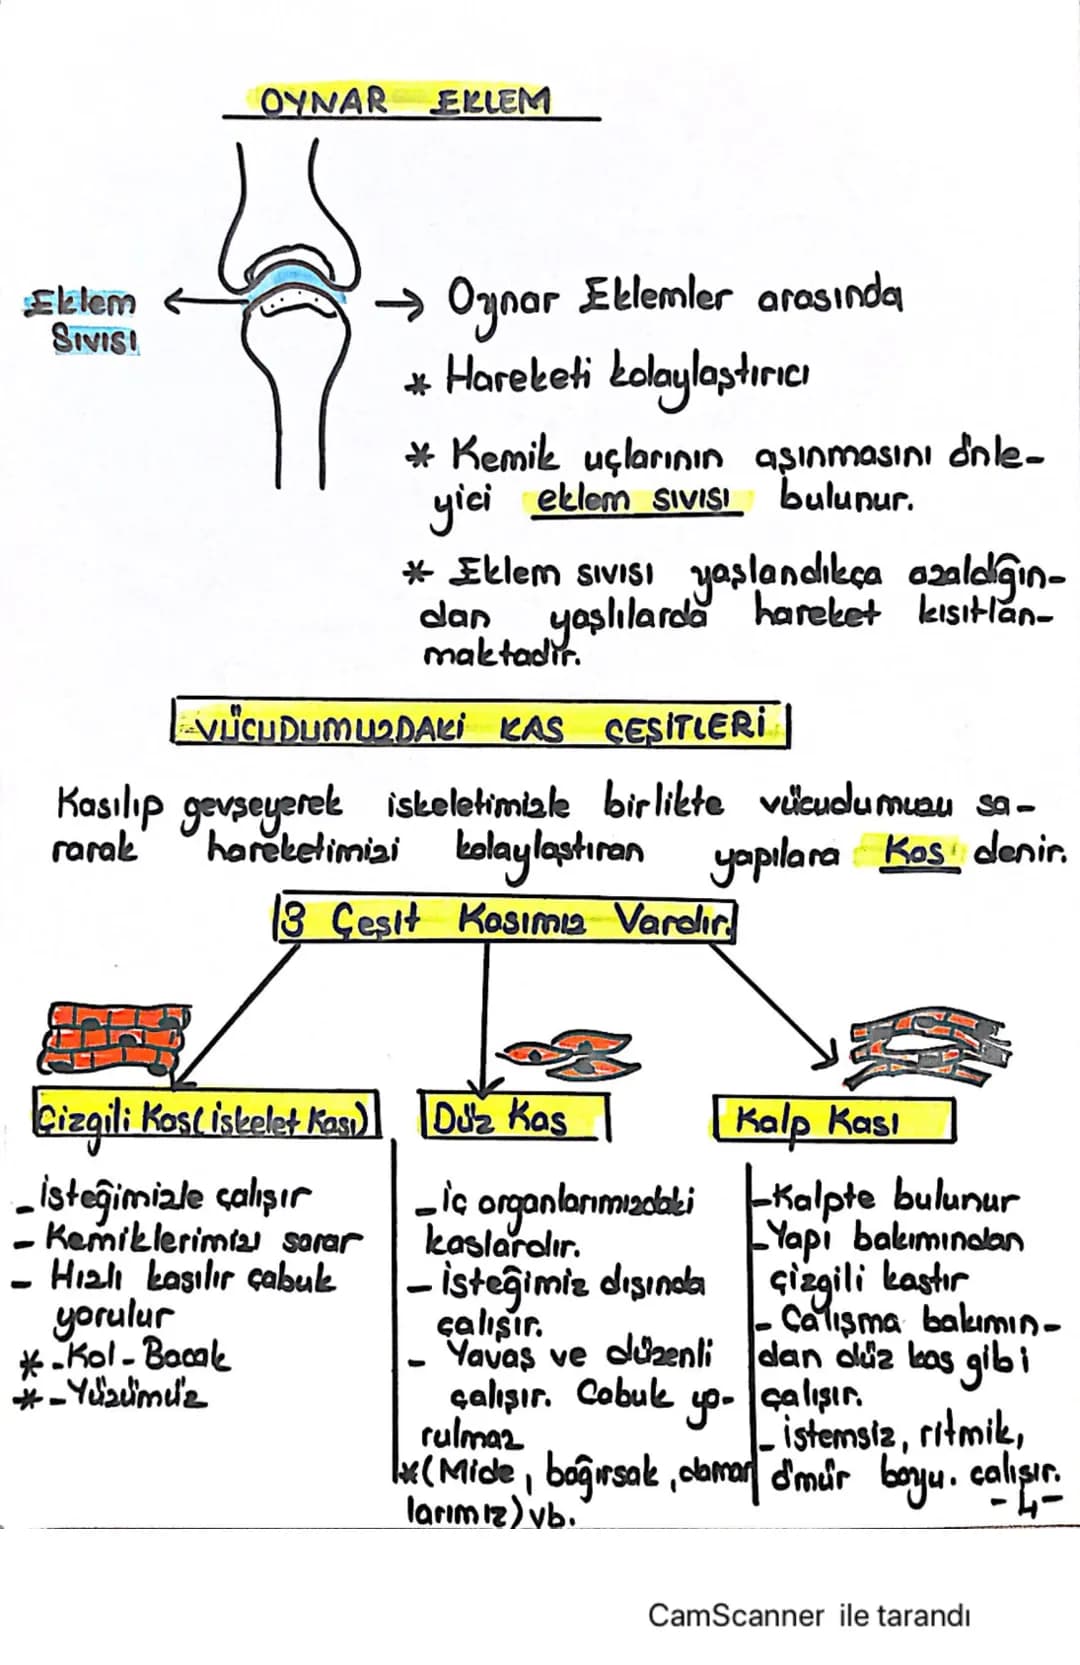 OYNAR EKLEM
Eklem
Sıvısı
→ Oynar Eklemler arasında
* Hareketi kolaylaştırıcı
* Kemik uçlarının aşınmasını önle-
yici eklem sıvısı bulunur.
* Eklem sıvısı yaşlandıkça azaldığın-
dan yaşlılarda hareket kısıtlan-
maktadır.
VÜCUDUMUZDAKİ KAS ÇEŞİTLERİ
Kasılıp gevşeyerek iskeletimizle birlikte vücudumuzu sa-
rarak hareketimizi kolaylaştıran yapılara Kas denir.
3 Çeşit Kasımız Vardır.
Çizgili Kas(iskelet Kası)
- isteğimizle çalışır
- Kemiklerimizi sarar
- Hızlı kasılır çabuk
yorulur
* -Kol - Bacak
* -Yüzümüz
Düz Kas
- iç organlarımızdaki
kaslardır.
- isteğimiz dışında
çalışır.
- Yavaş ve düzenli
çalışır. Çabuk yo-
rulmaz
*(Mide, bağırsak, damar
larımız) vb.
Kalp Kası
-Kalpte bulunur
-Yapı bakımından
çizgili kastır
- Çalışma bakımın-
dan düz kas gibi
çalışır.
- istemsiz, ritmik,
ömür boyu. çalışır.
-4-
CamScanner ile tarandı